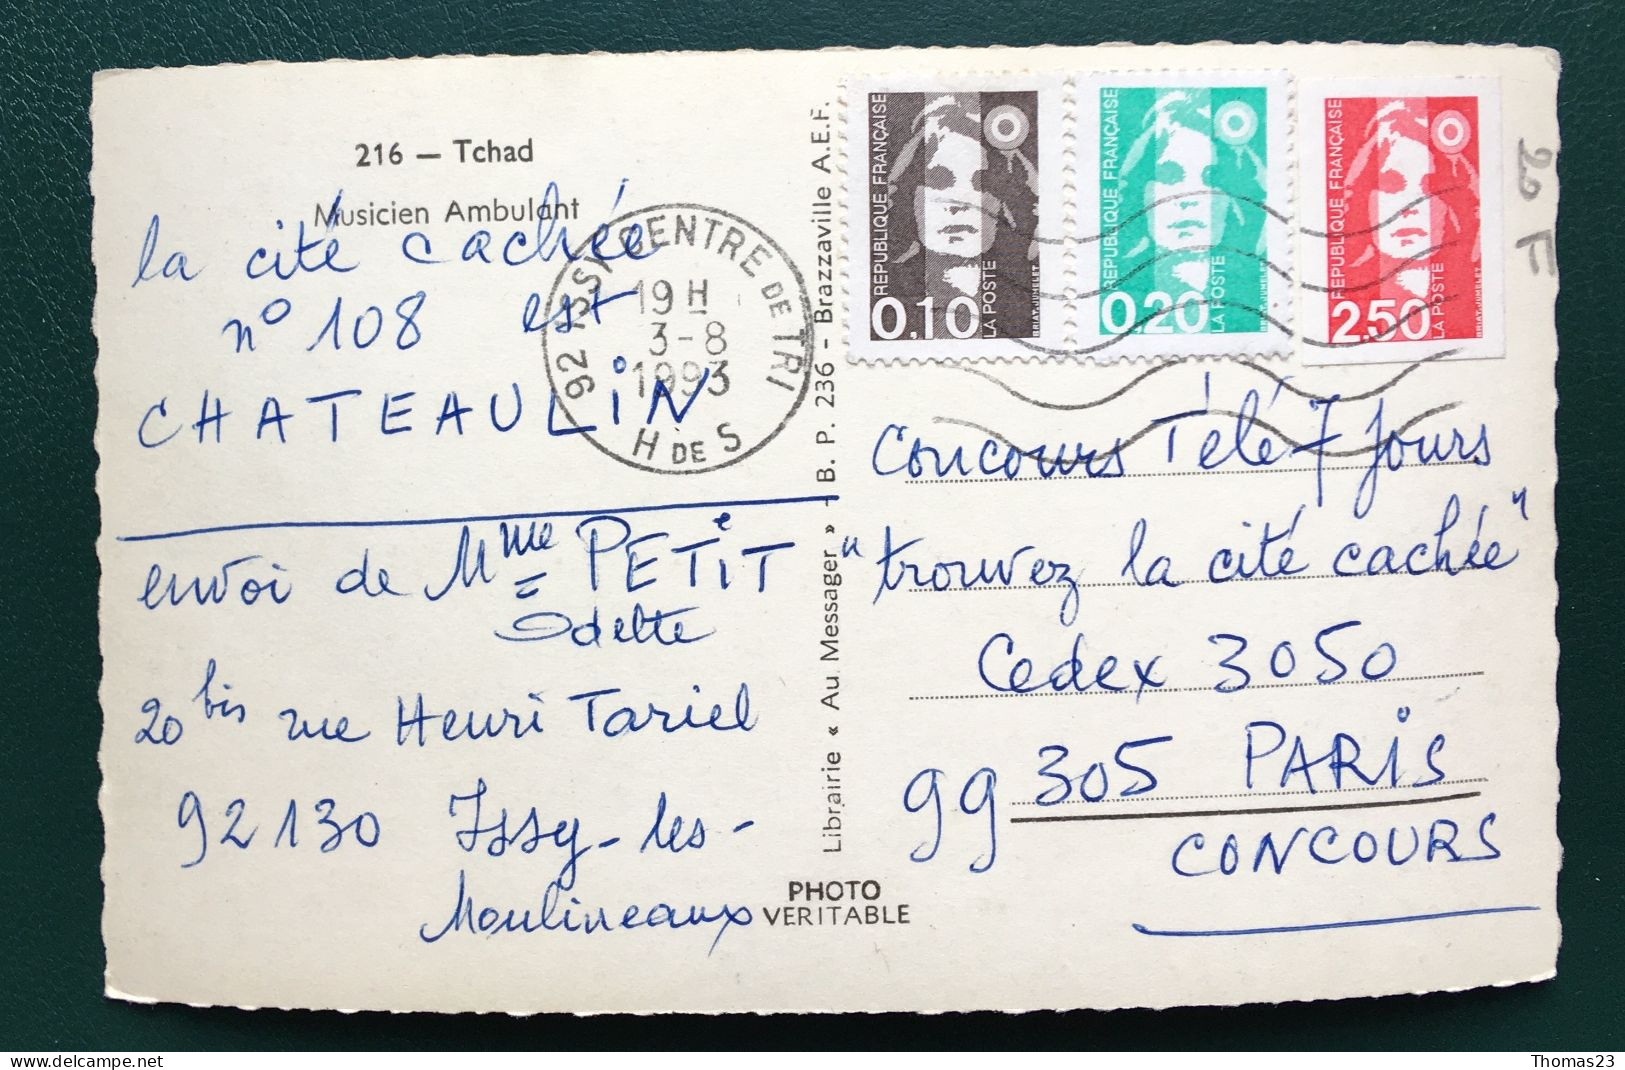 216 — Tchad
Musicien Ambulant
la cité cachée
n° 108 est
CHATEAULIN
envoi de Mme PETIT
Odette
20 bis rue Henri Tariel
92130 Issy-les-
Moulineaux
92 ISSY CENTRE DE TRI
19 H
3-8
1993
H DE S
Librairie « Au. Messager » - B. P. 236 - Brazzaville A.E.F.
PHOTO
VERITABLE
RÉPUBLIQUE FRANÇAISE
0,10
LA POSTE
BRIAT-JUMELET
RÉPUBLIQUE FRANÇAISE
0,20
LA POSTE
BRIAT-JUMELET
RÉPUBLIQUE FRANÇAISE
2,50
LA POSTE
BRIAT-JUMELET
20 F
Concours Télé 7 Jours
"trouvez la cité cachée"
Cedex 3050
99305 PARIS
CONCOURS
delcampe.net
Thomas23